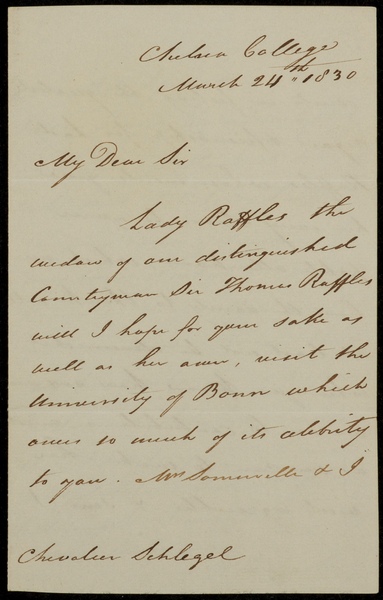 Chelsea College
March 24th 1830
My Dear Sir
Lady Raffles the
widow of our distinguished
Countryman Sir Thomas Raffles
will I hope for your sake as
well as her own, visit the
University of Bonn which
owes so much of its celebrity
to you. Mrs Somerville & I
Chevalier Schlegel